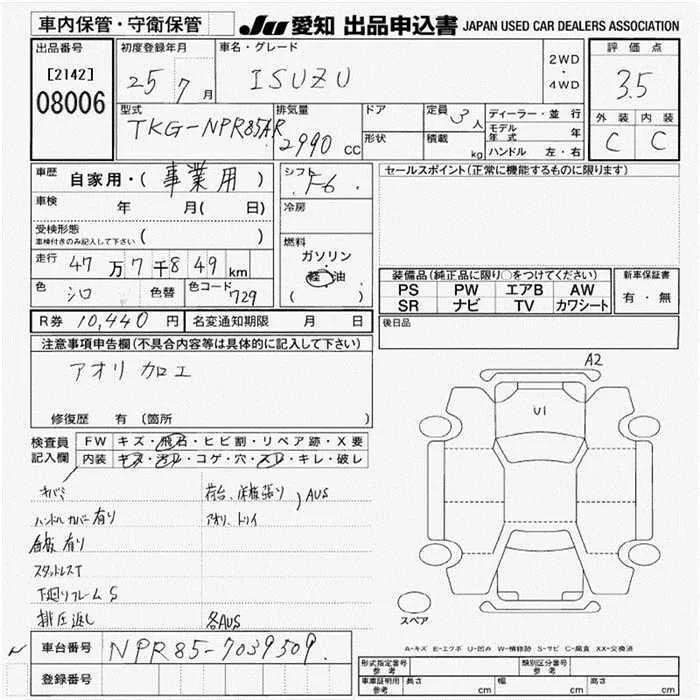 車内保管・守衛保管
JU 愛知 出品申込書 JAPAN USED CAR DEALERS ASSOCIATION
出品番号
[2142]
08006
初度登録年月
25 7月
車名・グレード
ISUZU
2WD
・
4WD
評価点
3.5
外装 内装
C C
型式
TKG-NPR85AR
排気量
2990 CC
ドア
形状
定員 3人
積載 kg
ディーラー・並行
モデル年式 年
ハンドル 左・右
車歴 自家用・(事業用)
車検 年 月( 日)
受検形態
車検付きのみ記入して下さい ( )
走行 47万7千849km
色 シロ 色替 色コード 729
シフト F6
冷房
燃料
ガソリン
軽油
( )
セールスポイント(正常に機能するものに限ります)
装備品(純正品に限り○をつけてください)
PS PW エアB AW
SR ナビ TV カワシート
新車保証書
有・無
後日品
R券 10,440円 名変通知期限 月 日
注意事項申告欄(不具合内容等は具体的に記入して下さい)
アオリ加工
修復歴 有 (箇所 )
検査員記入欄
FW キズ・飛石・ヒビ割・リペア跡・X要
内装 キズ・汚レ・コゲ・穴・スレ・キレ・破レ
ハンドルカバー有り
荷台、床板張り
アオリ、トリイ
AUS
看板有り
スタットレスT
下廻りフレームS
排圧返し
各AUS
A2
U1
スペア
A-キズ E-エクボ U-凹み W-補修跡 S-サビ C-腐食 XX-交換済
車台番号 NPR85-7039509
登録番号
形式指定番号 参考
類別区分番号 参考
車庫証明用 参考 長さ cm 幅 cm 高さ cm